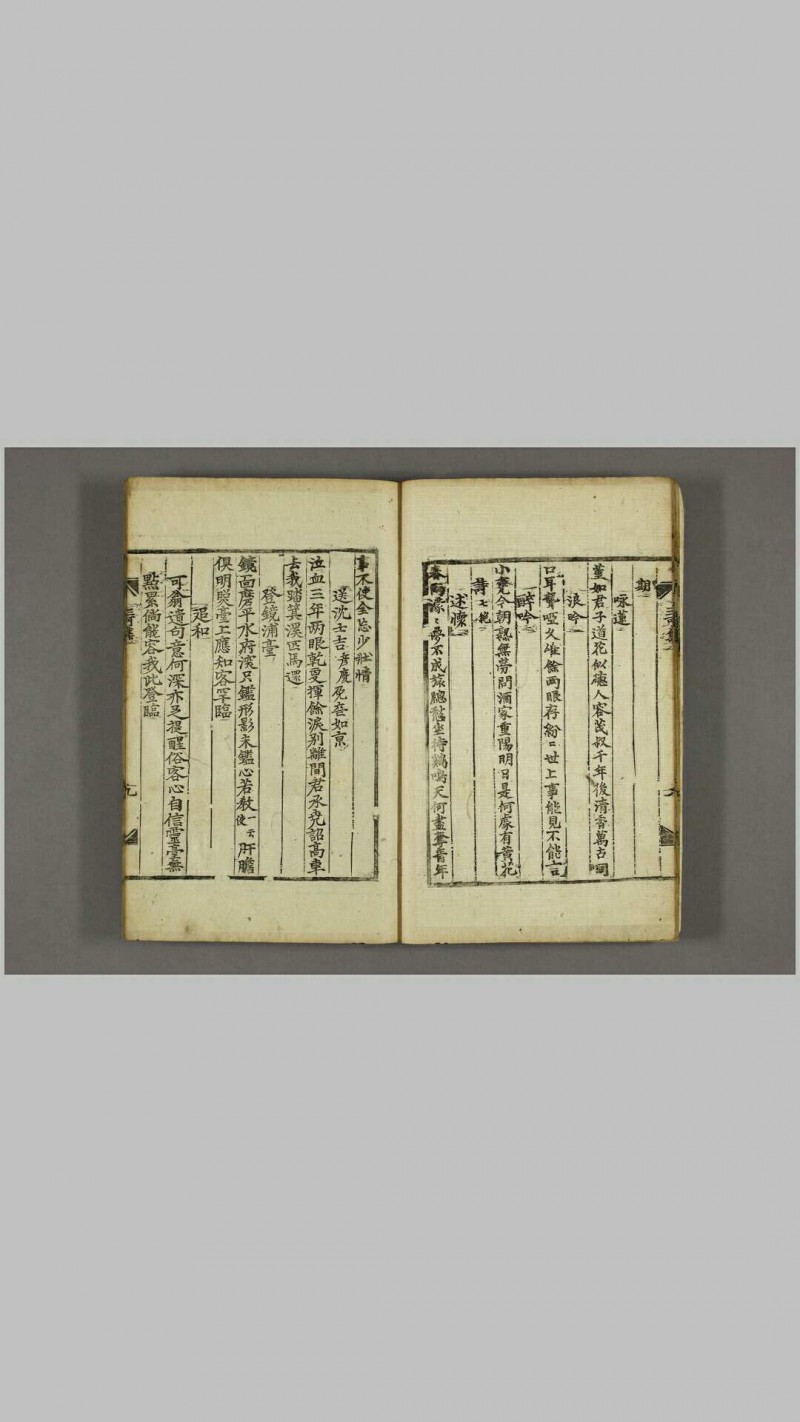 期
咏蓮
堇如君子道花似德人容茂叔千年後清香萬古同
浪吟
口耳聾啞久唯餘兩眼存紛〻世上事能見不能言
醉吟
小甕今朝熟無勞問酒家重陽明日是何處有黃花
述懷
春雨濛〻夢不成 坐待鷄鳴天何 年
事不使全忘少壯情
送沈士吉彥慶免喪如京
泣血三年兩眼乾更揮餘淚別離間君承堯詔高車
去我踏箕溪匹馬還
登鏡浦臺
鏡面磨平水府深只鑑形影未鑑心若教一云使肝膽
俱明照臺上應知客罕臨
追和
可翁遺句意何深亦足提醒俗客心自信靈臺無
點累倘能容我此登臨
九